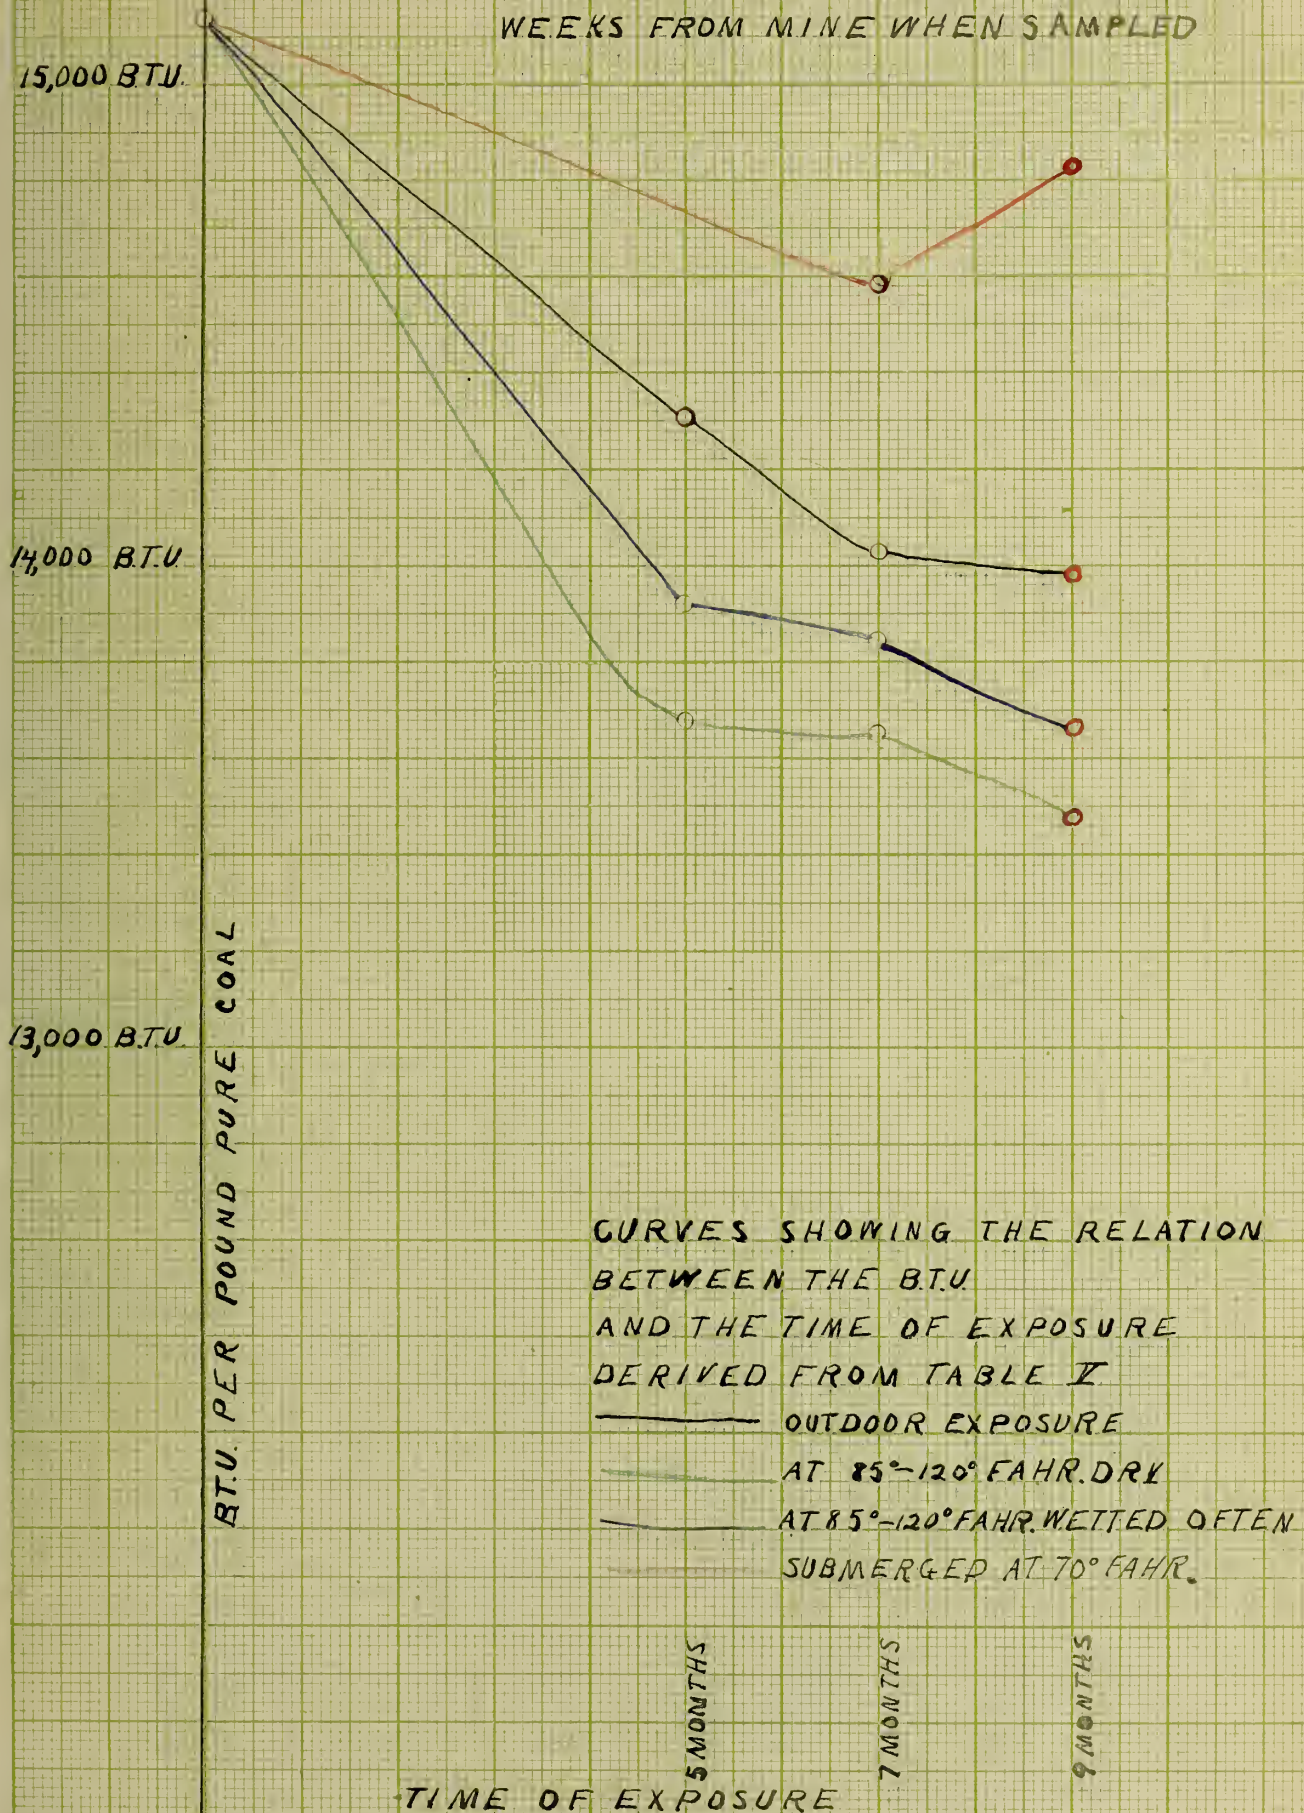 WEEKS FROM MINE WHEN SAMPLED
15,000 B.T.U.
14,000 B.T.U.
13,000 B.T.U.
B.T.U. PER POUND PURE COAL
CURVES SHOWING THE RELATION
BETWEEN THE B.T.U.
AND THE TIME OF EXPOSURE
DERIVED FROM TABLE V
OUTDOOR EXPOSURE
AT 85°-120° FAHR. DRY
AT 85°-120° FAHR. WETTED OFTEN
SUBMERGED AT 70° FAHR.
5 MONTHS
7 MONTHS
9 MONTHS
TIME OF EXPOSURE